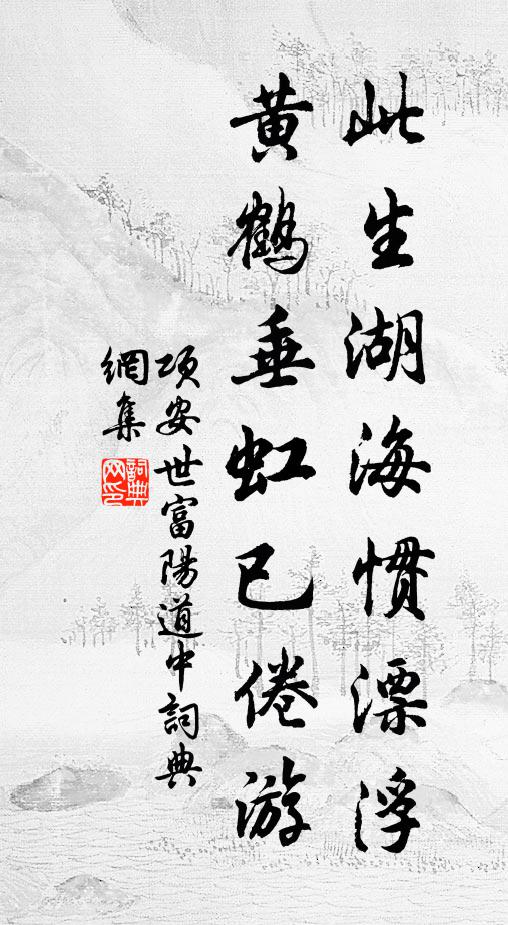 此生湖海惯漂浮
黄鹤垂虹已倦游
項安世富陽道中詞典
網集
詞典
网印